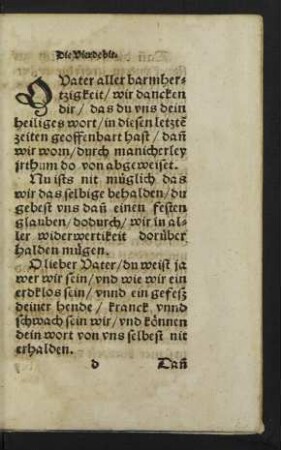 Die Vierde bit.
O Vater aller barmher-
tzigkeit/wir dancken
dir/das du vns dein
heiliges wort/in diesen letztē
zeiten geoffenbart hast/dañ
wir worn/durch manicherley
jrthum do von abgeweiset.
Nu ists nit müglich das
wir das selbige behalden/du
gebest vns dañ einen festen
glauben/dodurch/wir in al-
ler widerwertikeit dorüber
halden mügen.
O lieber Vater/du weist ja
wer wir sein/vnd wie wir ein
erdklos sein/vnnd ein gefesz
deiner hende/kranck vnnd
schwach sein wir/vnd können
dein wort von vns selbest nit
erhalden.
d Dañ